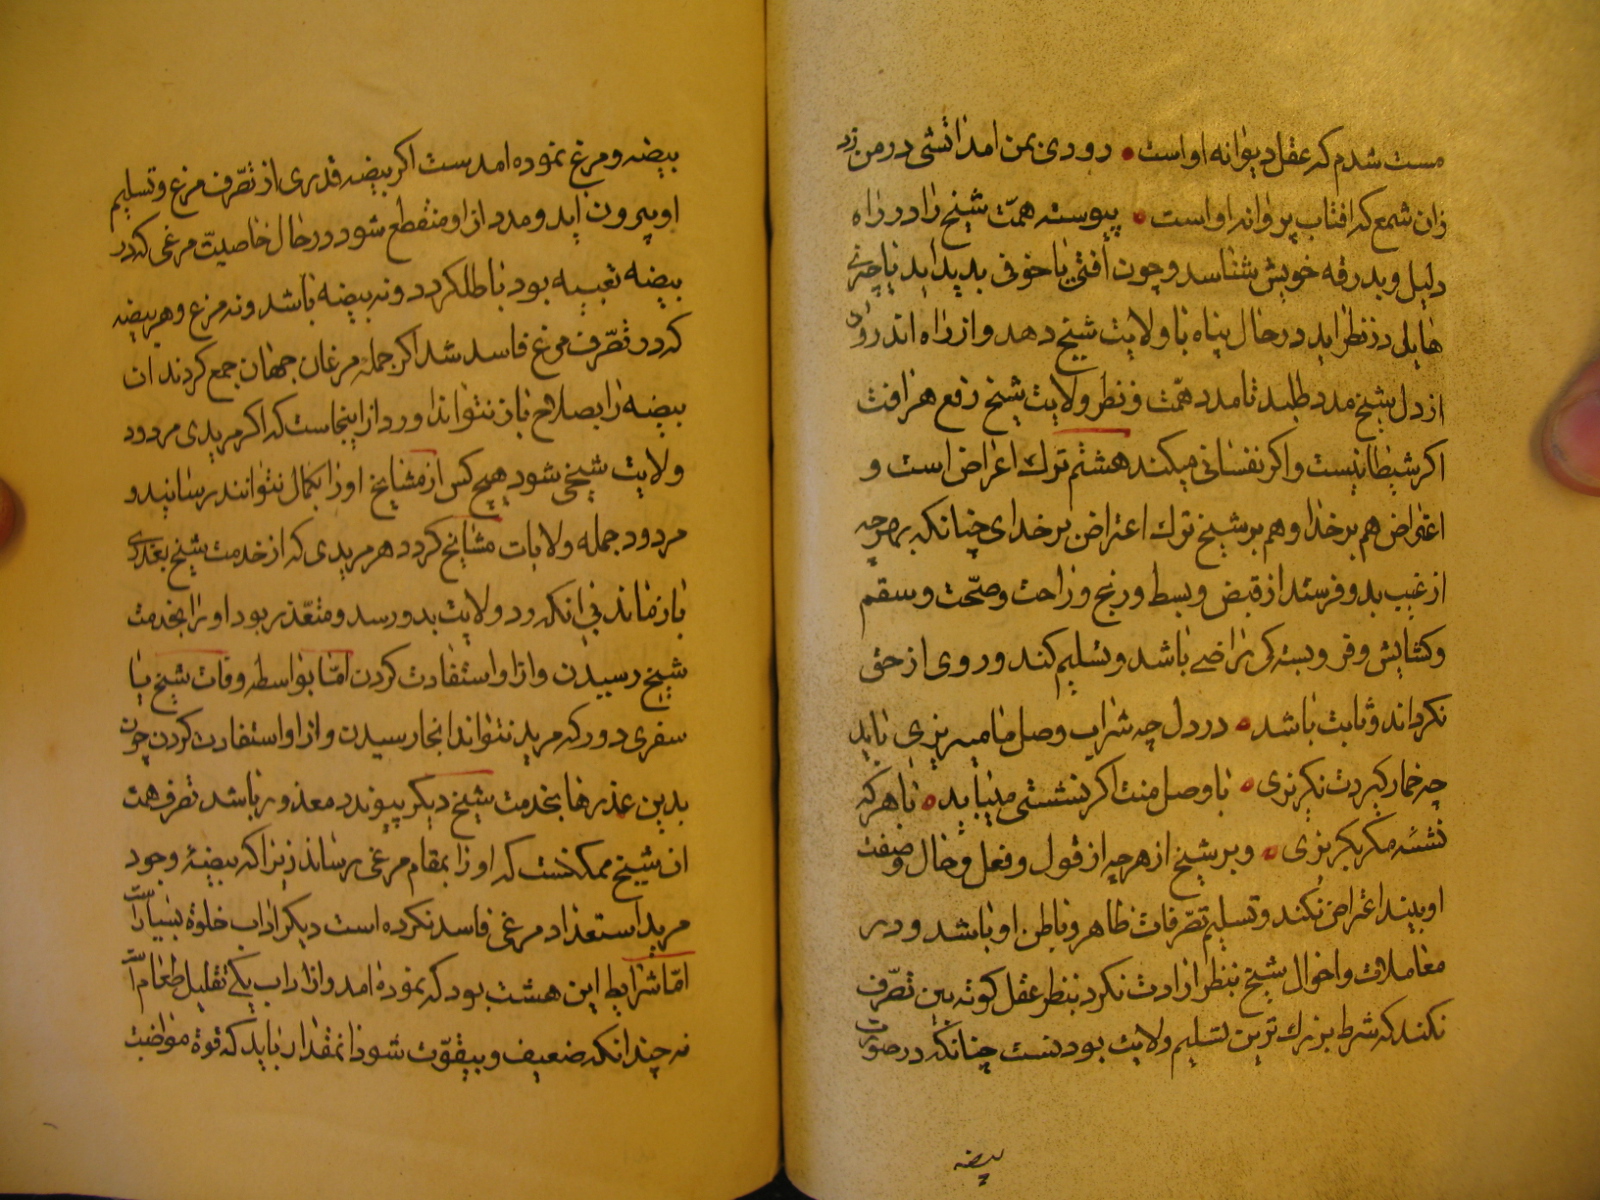 مست شدم که عقل دیوانه اواست • روزی بمن امد اتشی در من زد
زان شمع که افتاب پروانه اواست • پیوسته همّت شیخ را در راه
دلیل و بدرقه خویش شناسد و چون أفتی یا خوفی بدید اید یا چیزی
هایلی در نظر اید در حال پناه با ولایت شیخ دهد و از راه اندرون
از دل شیخ مدد طلبد تا مدد همّت و نظر ولایت شیخ رفع هر افت
اکر شیطانیست و اکر نفسانی میکند هشتم ترک اعراض است و
اعتراض هم بر خدا و هم بر شیخ ترک اعتراض بر خدای چنانکه بهرچه
از غیب بدو فرستد از قبض و بسط و رنج و راحت و صحّت و سقم
و کشایش و فرو بستکی راضی باشد و تسلیم کند و روی از حق
نکرداند و ثابت باشد • در دل چه شراب وصل ما میریزی باید
چه خمار کیردت نکریزی • با وصل منت اکر نشستی میباید • با هرکه
نشسته مکر بکریزی • و بر شیخ از هرچه از قول و فعل و حال و صفت
او بیند اعتراض نکند و تسلیم تصّرفات ظاهر و باطن او باشد و در
معاملات و احوال شیخ بنظر ارادت نکرد بنظر عقل کوته بین تصّرف
نکند که شرط بزرک ترین تسلیم ولایت بودنست چنانکه در صورت
بیضه
بیضه و مرغ نموده امدست اکر بیضه قدری از تصّرف مرغ و تسلیم
او بیرون اید و مدد از او منقطع شود در حال خاصیّت مرغی که در
بیضه تعبیه بود باطل کردد و نه بیضه باشد و نه مرغ و هر بیضه
که در تصّرف مرغ فاسد شد اکر جمله مرغان جهان جمع کردند ان
بیضه را بصلاح باز نتواند اورد از اینجاست که اکر مریدی مردود
ولایت شیخی شود هیچ کس از مشایخ او را بکمال نتوانند رسانید و
مردود جمله ولایات مشایخ کردد هر مریدی که از خدمت شیخ بعذری
باز ماند بی انکه رد ولایت بدو رسد و متعّذر بود او را بخدمت
شیخ رسیدن و از او استفادت کردن امّا بواسطه وفات شیخ یا
سفری دور که مرید نتواند انجا رسیدن و از او استفادت کردن چون
بدین عذرها بخدمت شیخ دیکر پیوندد معذور باشد تصرف همت
ان شیخ ممکنست که او را بمقام مرغی رساند زیرا که بیضۀ وجود
مرید استعداد مرغی فاسد نکرده است دیکر اداب خلوة بسیار است
امّا شرایط این هشت بود که نموده امد و از اداب یکی تقلیل طعام است
نه چندانکه ضعیف و بیقوّت شود انمقدار باید که قوة مواظبت